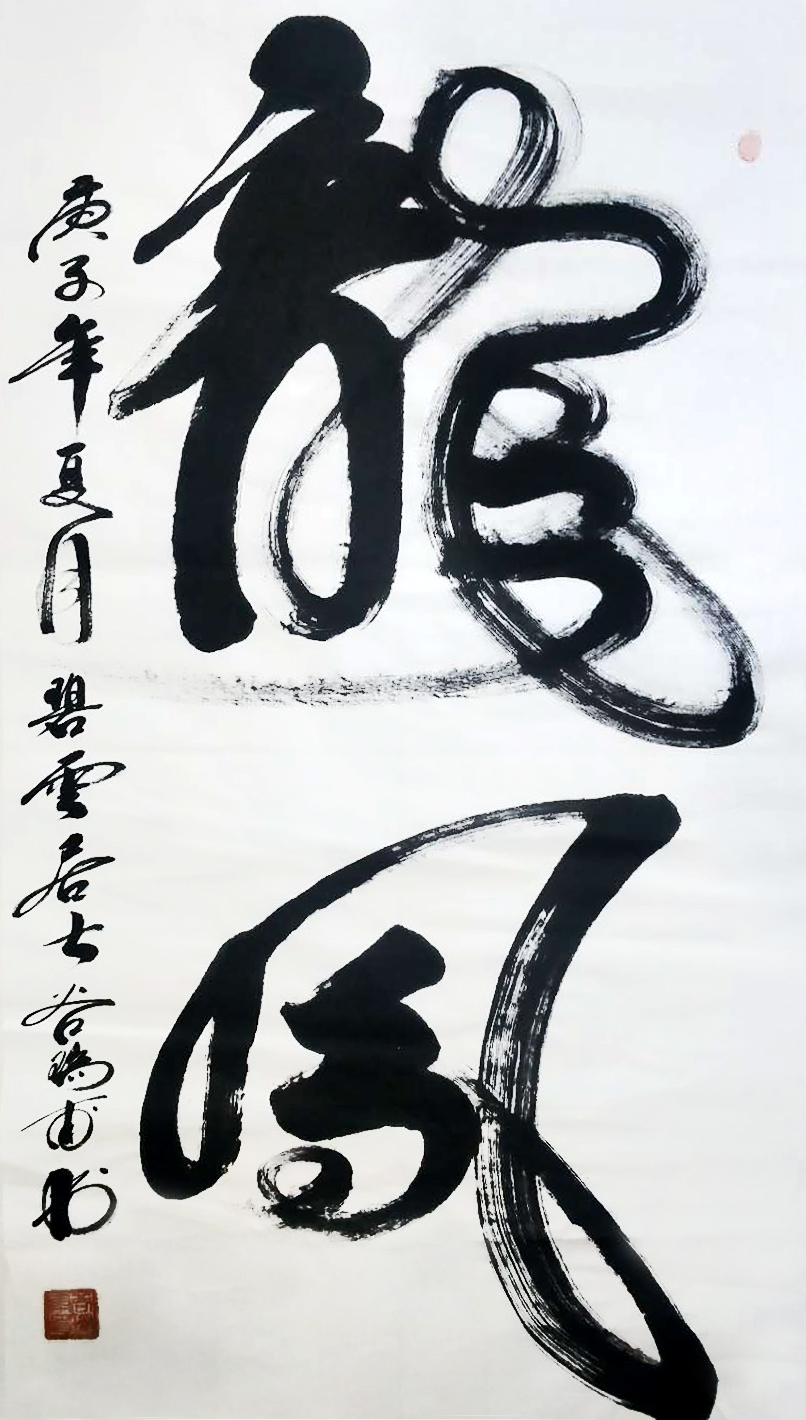 龍鳳
庚子年夏月碧雲居士谷瑞甫